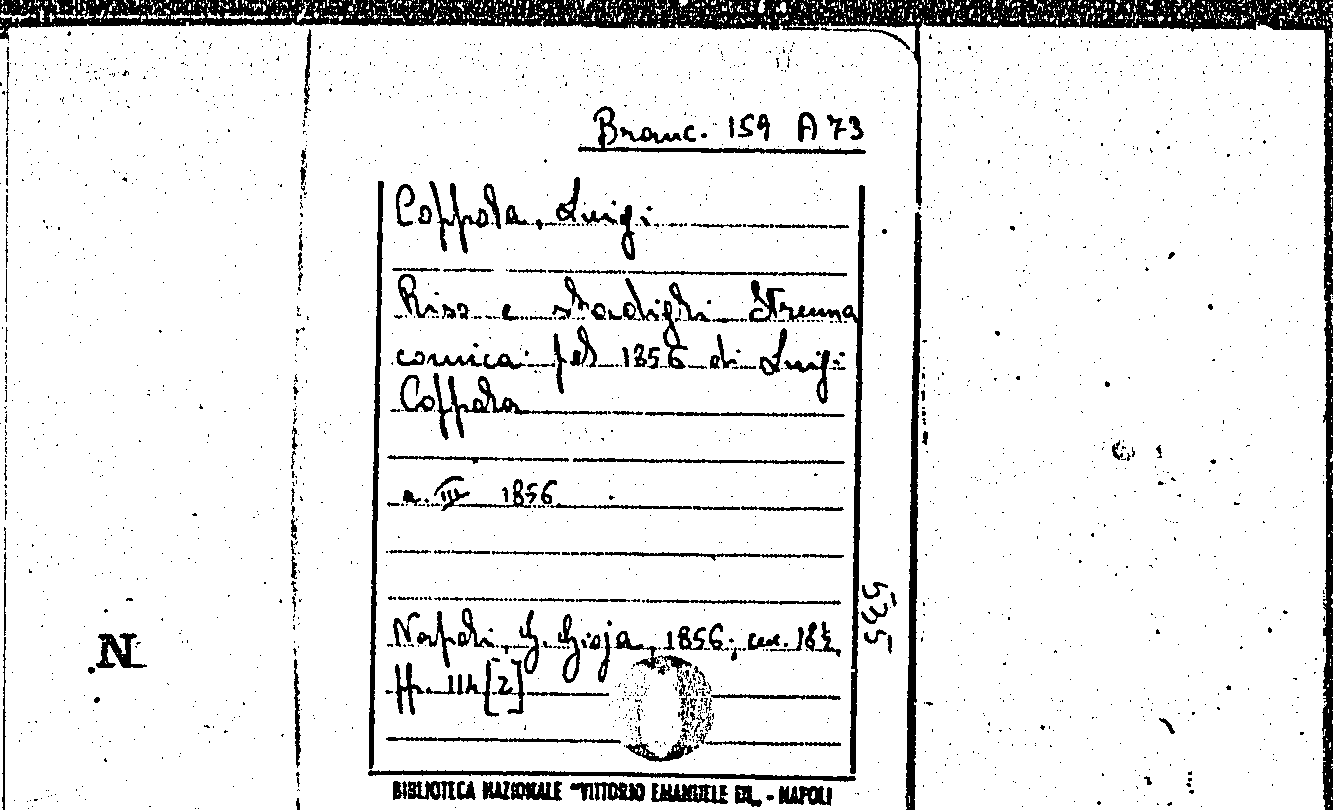 Branc. 159 A 73
Coppola, Luigi
Riso e sbadigli. Strenna
comica pel 1856 di Luigi
Coppola
a. III 1856
Napoli, G. Gioja, 1856; cm. 18½
pp. 114 [2]
535
N
BIBLIOTECA NAZIONALE "VITTORIO EMANUELE III" - NAPOLI